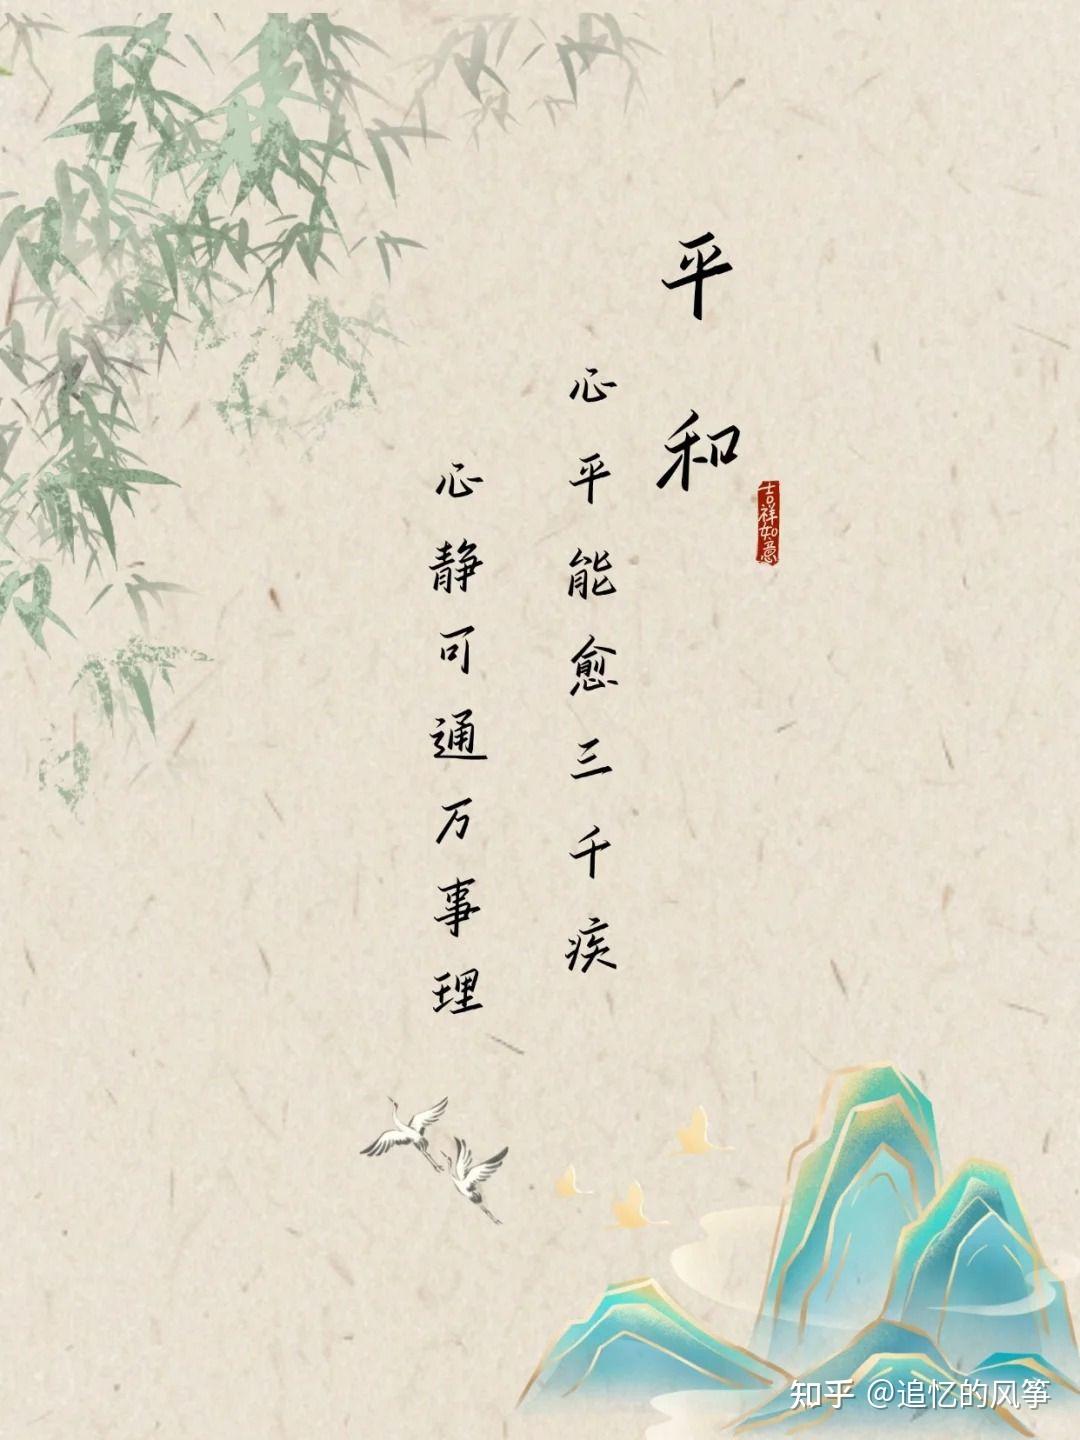 平和
心平能愈三千疾
心静可通万事理
吉祥如意
知乎 @追忆的风筝